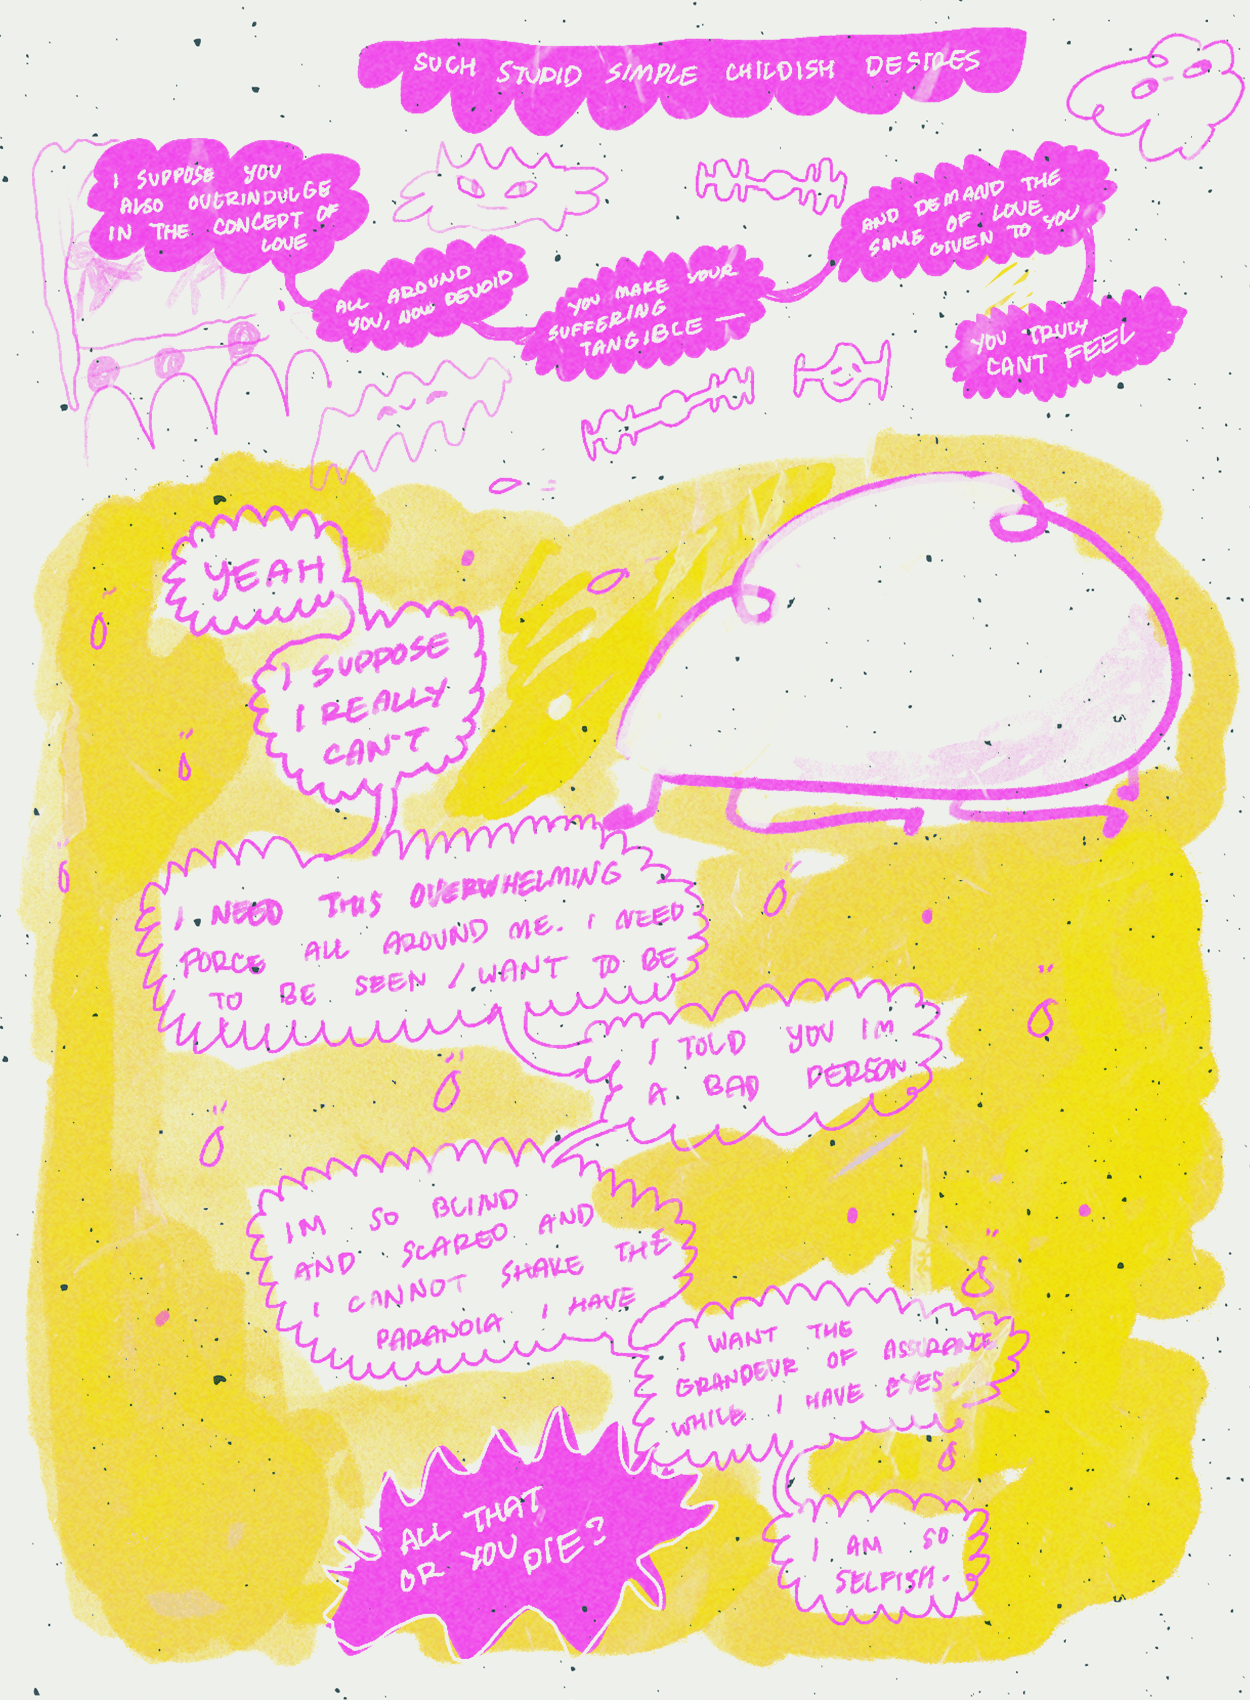 SUCH STUPID SIMPLE CHILDISH DESIRES
I SUPPOSE YOU
ALSO OVERINDULGE
IN THE CONCEPT OF
LOVE
ALL AROUND
YOU, NOW DEVOID
YOU MAKE YOUR
SUFFERING
TANGIBLE —
AND DEMAND THE
SAME OF LOVE
GIVEN TO YOU
YOU TRULY
CANT FEEL
YEAH
I SUPPOSE
I REALLY
CAN'T
I NEED THIS OVERWHELMING
FORCE ALL AROUND ME. I NEED
TO BE SEEN / WANT TO BE
I TOLD YOU IM
A BAD PERSON
IM SO BLIND
AND SCARED AND
I CANNOT SHAKE THE
PARANOIA I HAVE
I WANT THE
GRANDEUR OF ASSURANCE
WHILE I HAVE EYES.
I AM SO
SELFISH.
ALL THAT
OR YOU DIE?